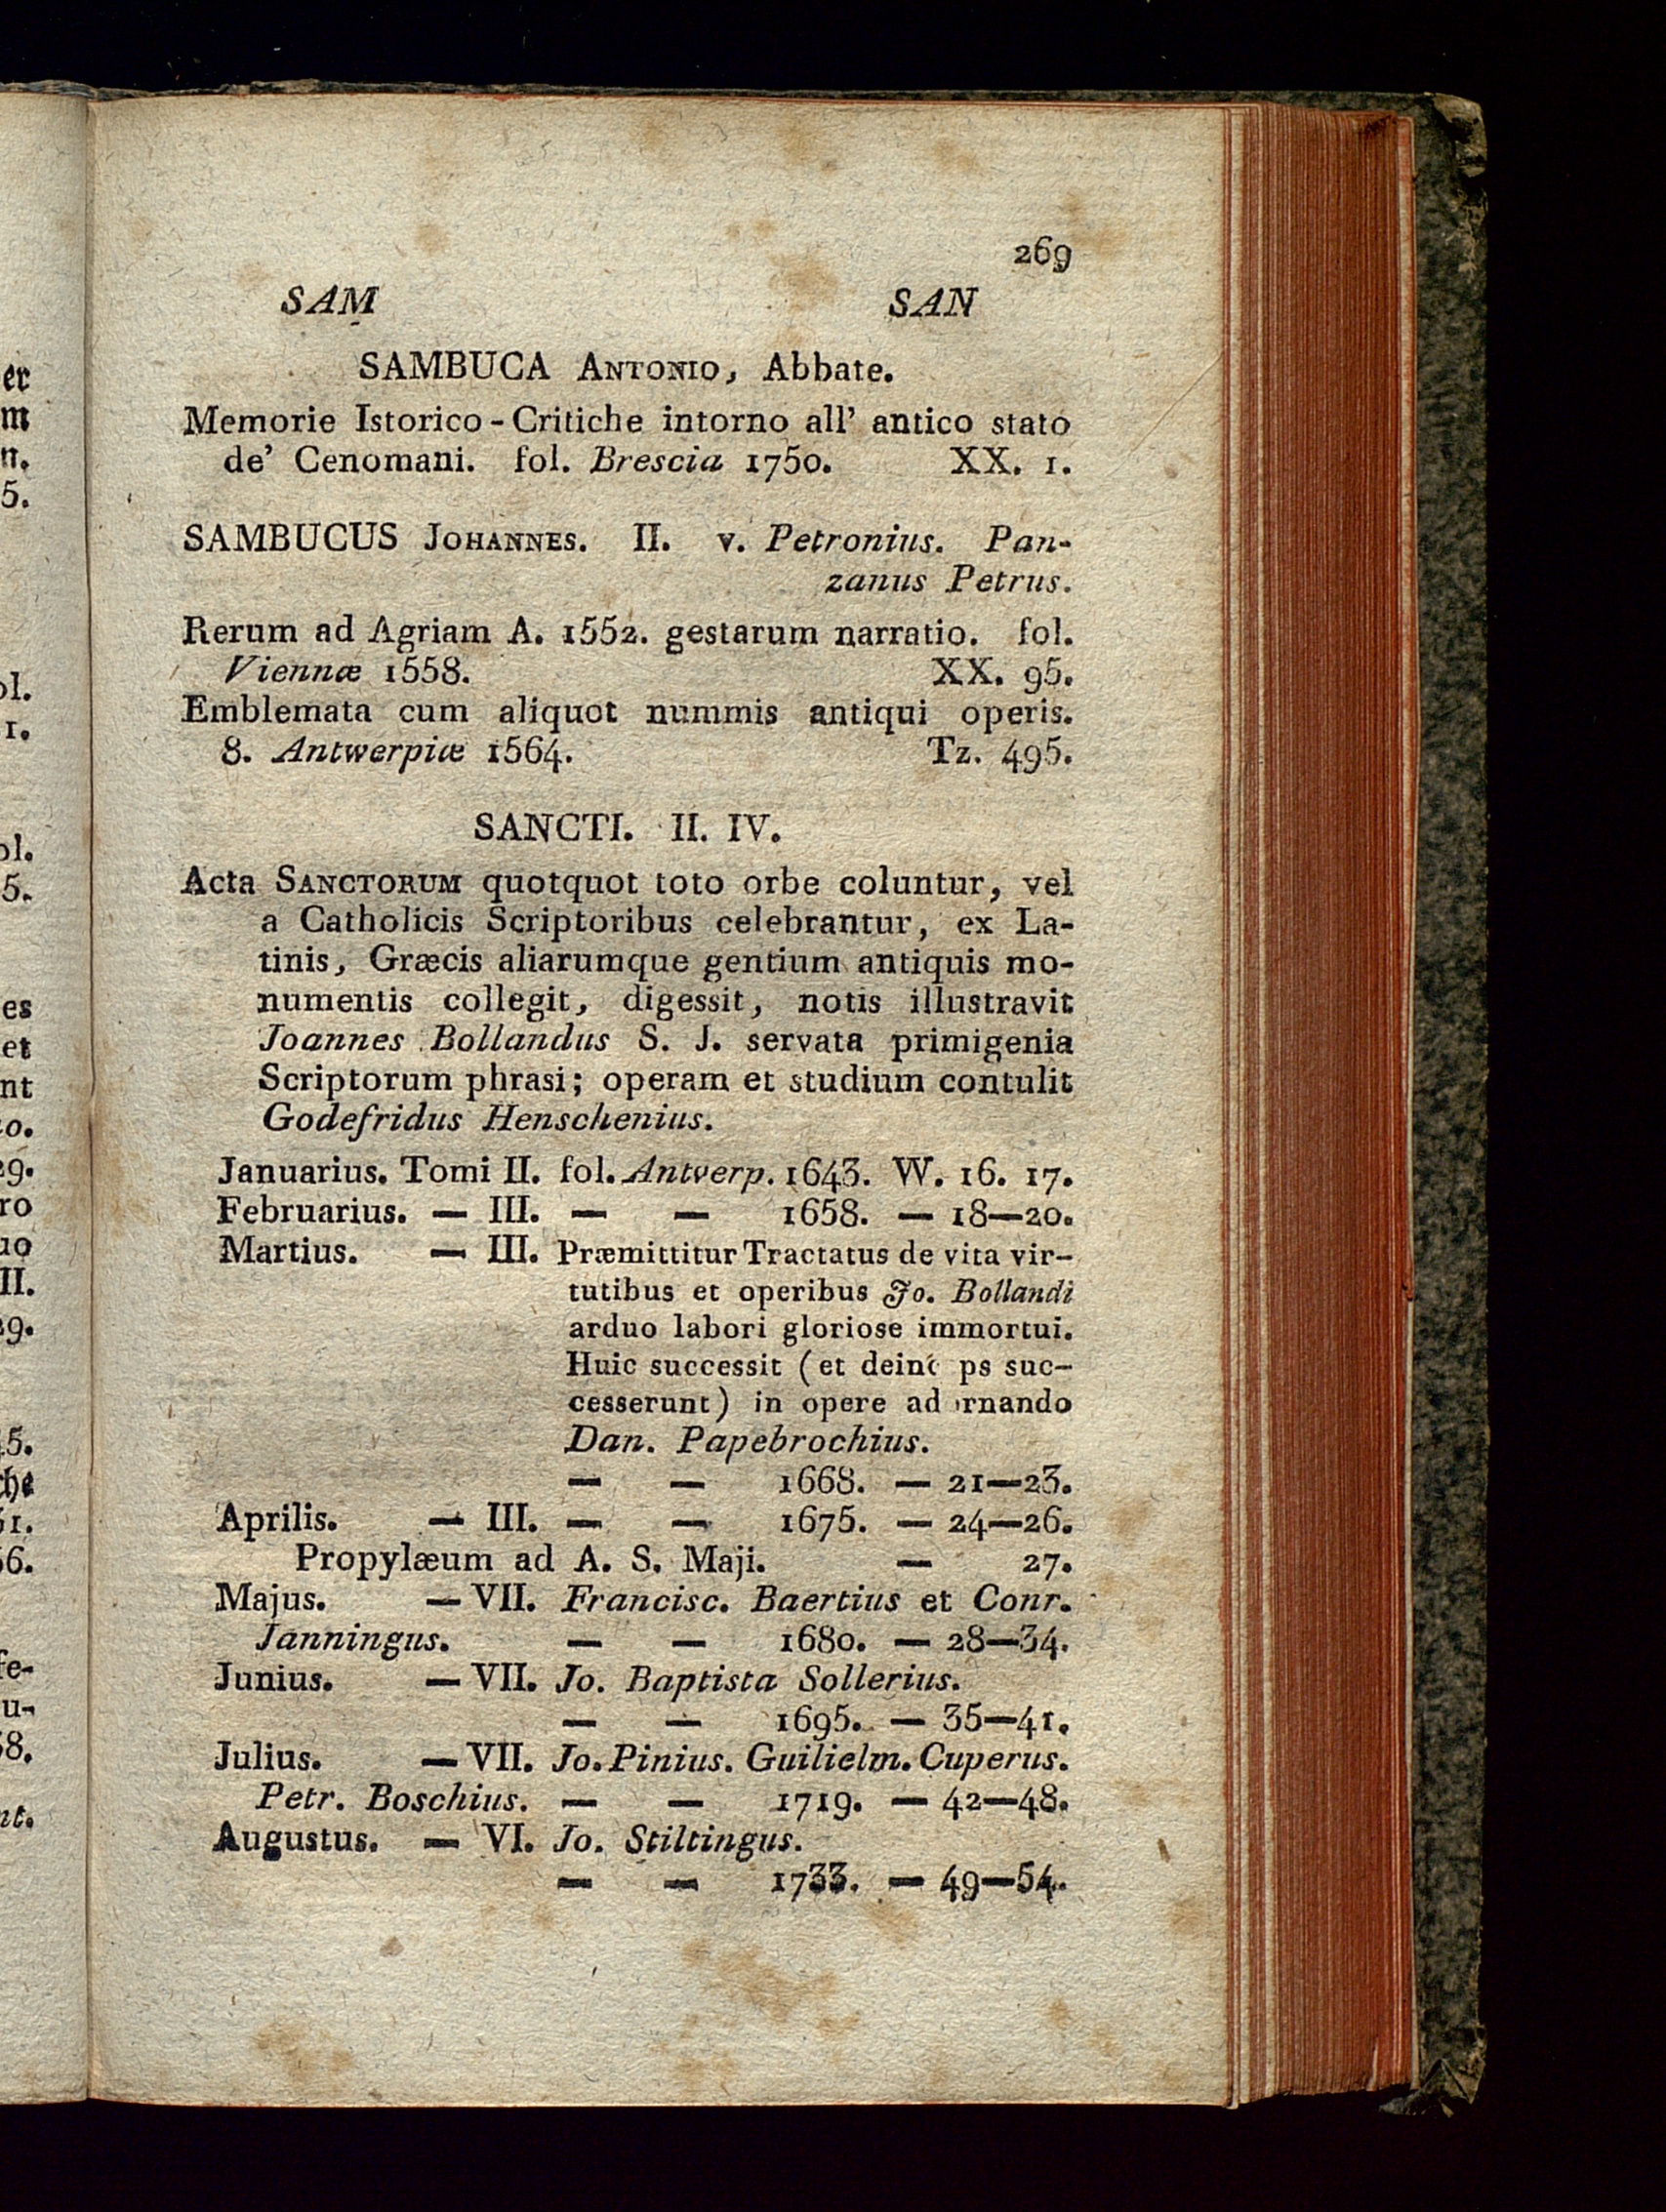 269
SAM SAN
SAMBUCA ANTONIO, Abbate.
Memorie Istorico-Critiche intorno all' antico stato
de' Cenomani. fol. Brescia 1750. XX. 1.
SAMBUCUS JOHANNES. II. v. Petronius. Pan-
zanus Petrus.
Rerum ad Agriam A. 1552. gestarum narratio. fol.
Viennæ 1558. XX. 95.
Emblemata cum aliquot nummis antiqui operis.
8. Antwerpiæ 1564. Tz. 495.
SANCTI. II. IV.
Acta SANCTORUM quotquot toto orbe coluntur, vel
a Catholicis Scriptoribus celebrantur, ex La-
tinis, Græcis aliarumque gentium antiquis mo-
numentis collegit, digessit, notis illustravit
Joannes Bollandus S. J. servata primigenia
Scriptorum phrasi; operam et studium contulit
Godefridus Henschenius.
Januarius. Tomi II. fol. Antverp. 1643. W. 16. 17.
Februarius. — III. — — 1658. — 18—20.
Martius. — III. Præmittitur Tractatus de vita vir-
tutibus et operibus Jo. Bollandi
arduo labori gloriose immortui.
Huic successit (et deinc ps suc-
cesserunt) in opere ad rnando
Dan. Papebrochius.
— — 1668. — 21—23.
Aprilis. — III. — — 1675. — 24—26.
Propylæum ad A. S. Maji. — 27.
Majus. — VII. Francisc. Baertius et Conr.
Janningus. — — 1680. — 28—34.
Junius. — VII. Jo. Baptista Sollerius.
— — 1695. — 35—41.
Julius. — VII. Jo. Pinius. Guilielm. Cuperus.
Petr. Boschius. — — 1719. — 42—48.
Augustus. — VI. Jo. Stiltingus.
— — 1733. — 49—54.